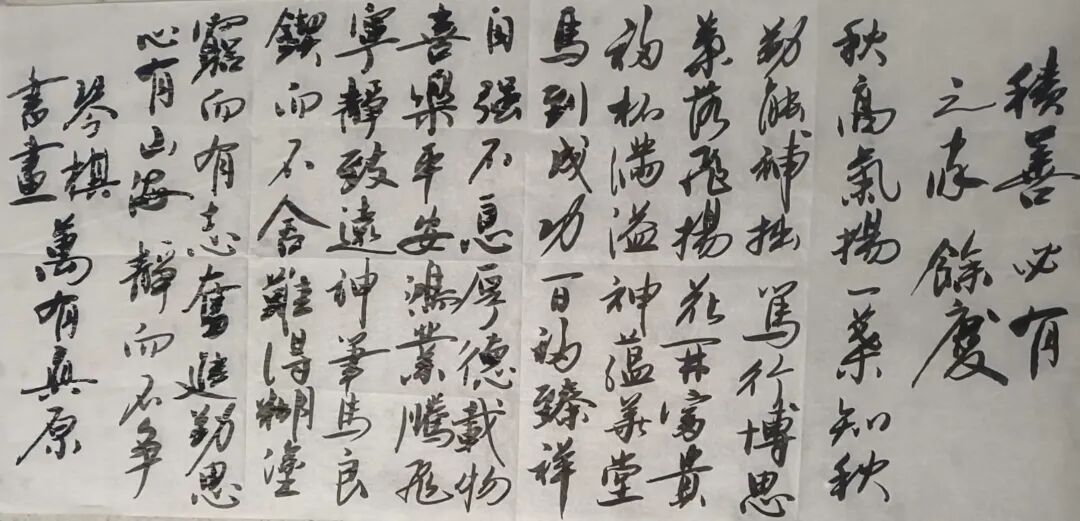 積善必有
之家餘慶
秋高氣揚一葉知秋
勤能補拙篤行博思
葉落飛揚花開富貴
福杯滿溢神蘊華堂
馬到成功百福臻祥
自强不息厚德載物
喜樂平安鴻業騰飛
寧靜致遠神筆馬良
鍥而不舍難得糊塗
窮而有志奮進勤思
心有山海靜而不争
琴棋
書畫萬有真原